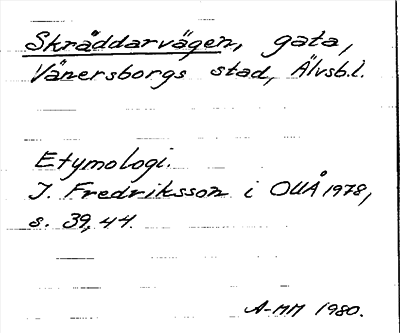 Skräddarvägen, gata,
Vänersborgs stad, Älvsb.l.
Etymologi.
I. Fredriksson i OUÅ 1978,
s. 39, 44.
A-MM 1980.